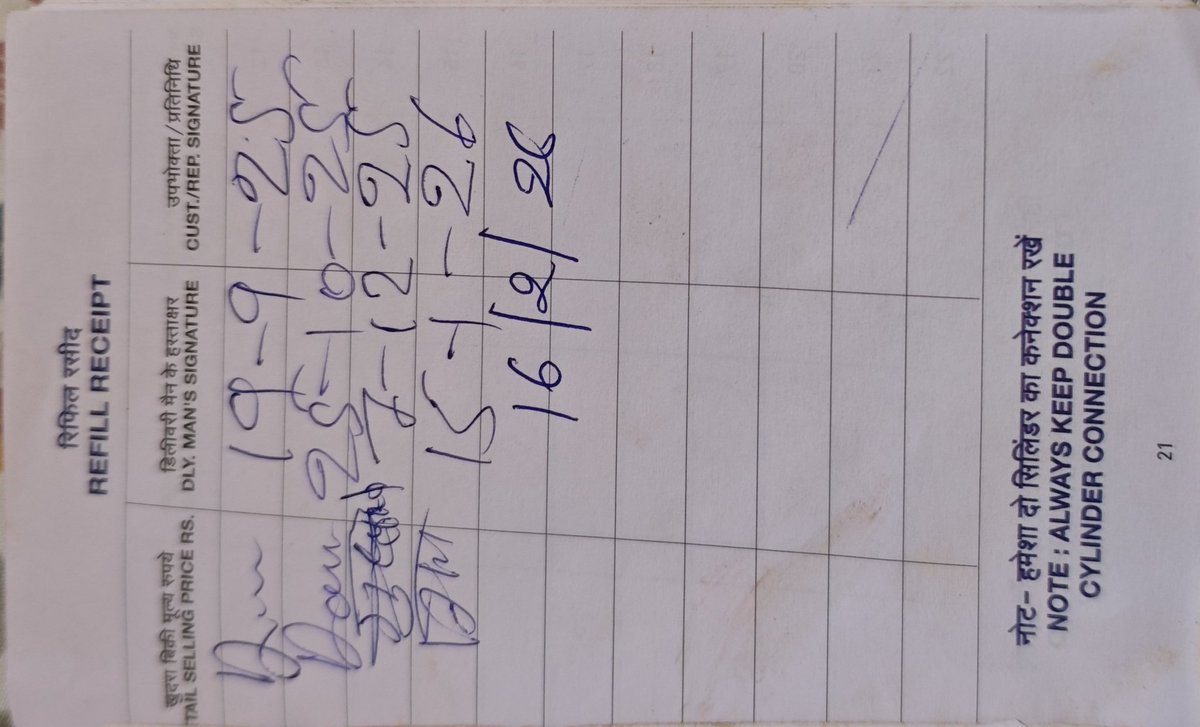 रिफिल रसीद
REFILL RECEIPT
खुदरा बिक्री मूल्य रुपये
TAIL SELLING PRICE RS.
डिलीवरी मैन के हस्ताक्षर
DLY. MAN'S SIGNATURE
उपभोक्ता / प्रतिनिधि
CUST./REP. SIGNATURE
19-9-25
25-10-25
8-12-25
15-1-26
16/2/26
नोट- हमेशा दो सिलिंडर का कनेक्शन रखें
NOTE : ALWAYS KEEP DOUBLE
CYLINDER CONNECTION
21